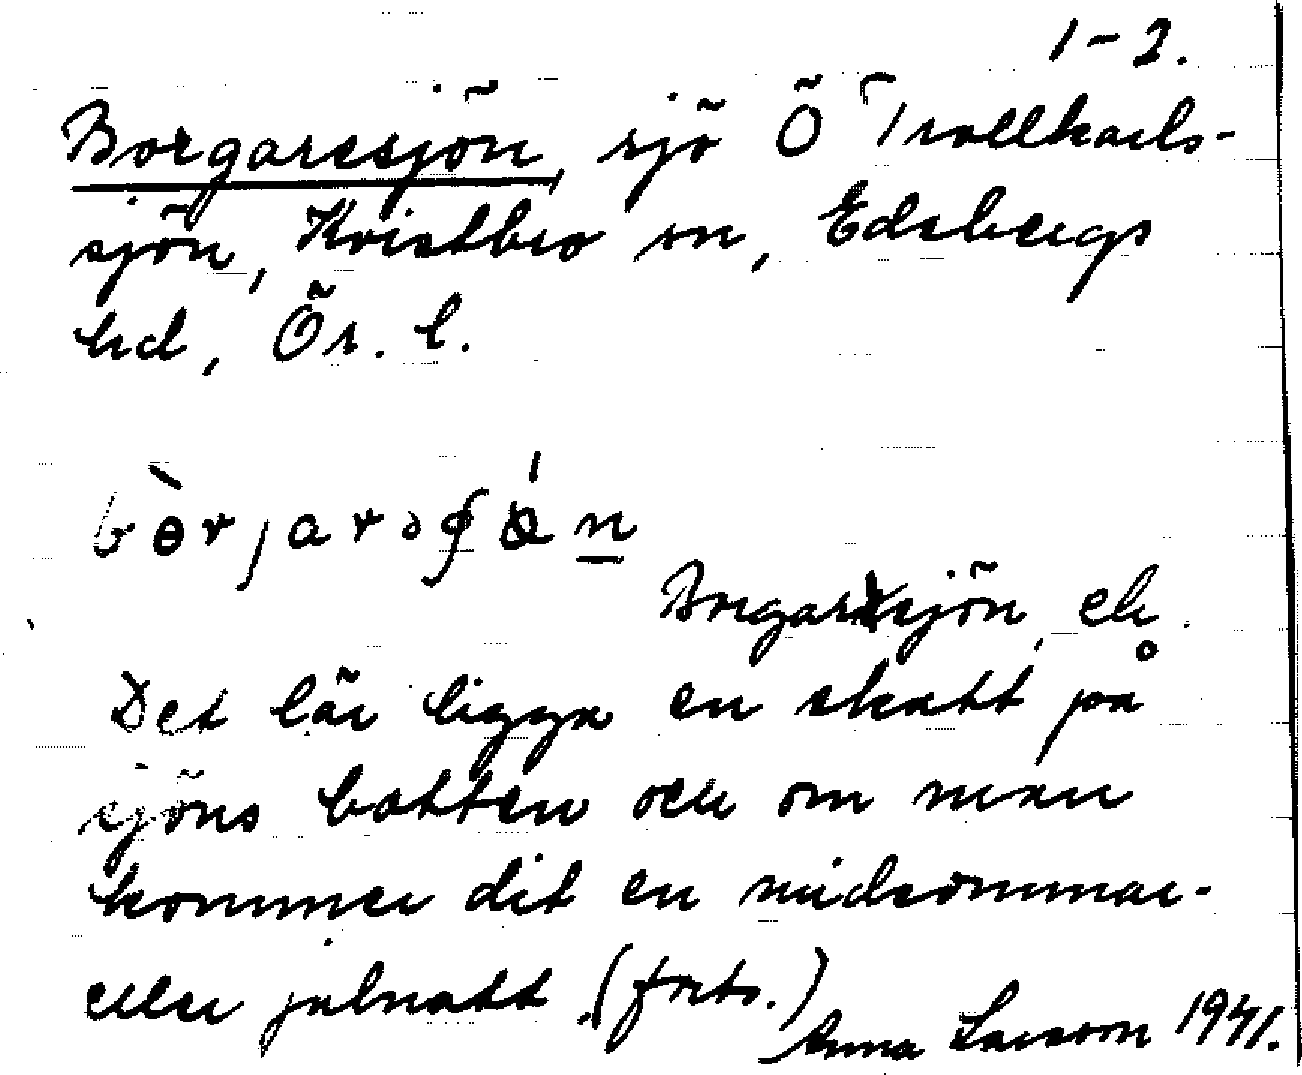 1-2.
Borgarsjön, sjö Ö Trollkarls-
sjön, Kvistbro sn, Edsbergs
hd, Ör. l.
bɵ̀rjarə
Borgarsjön, ek.
Det lär ligga en skatt på
sjöns botten och om man
kommer dit en midsommar-
eller julnatt (forts.)
Anna Larsson 1941.